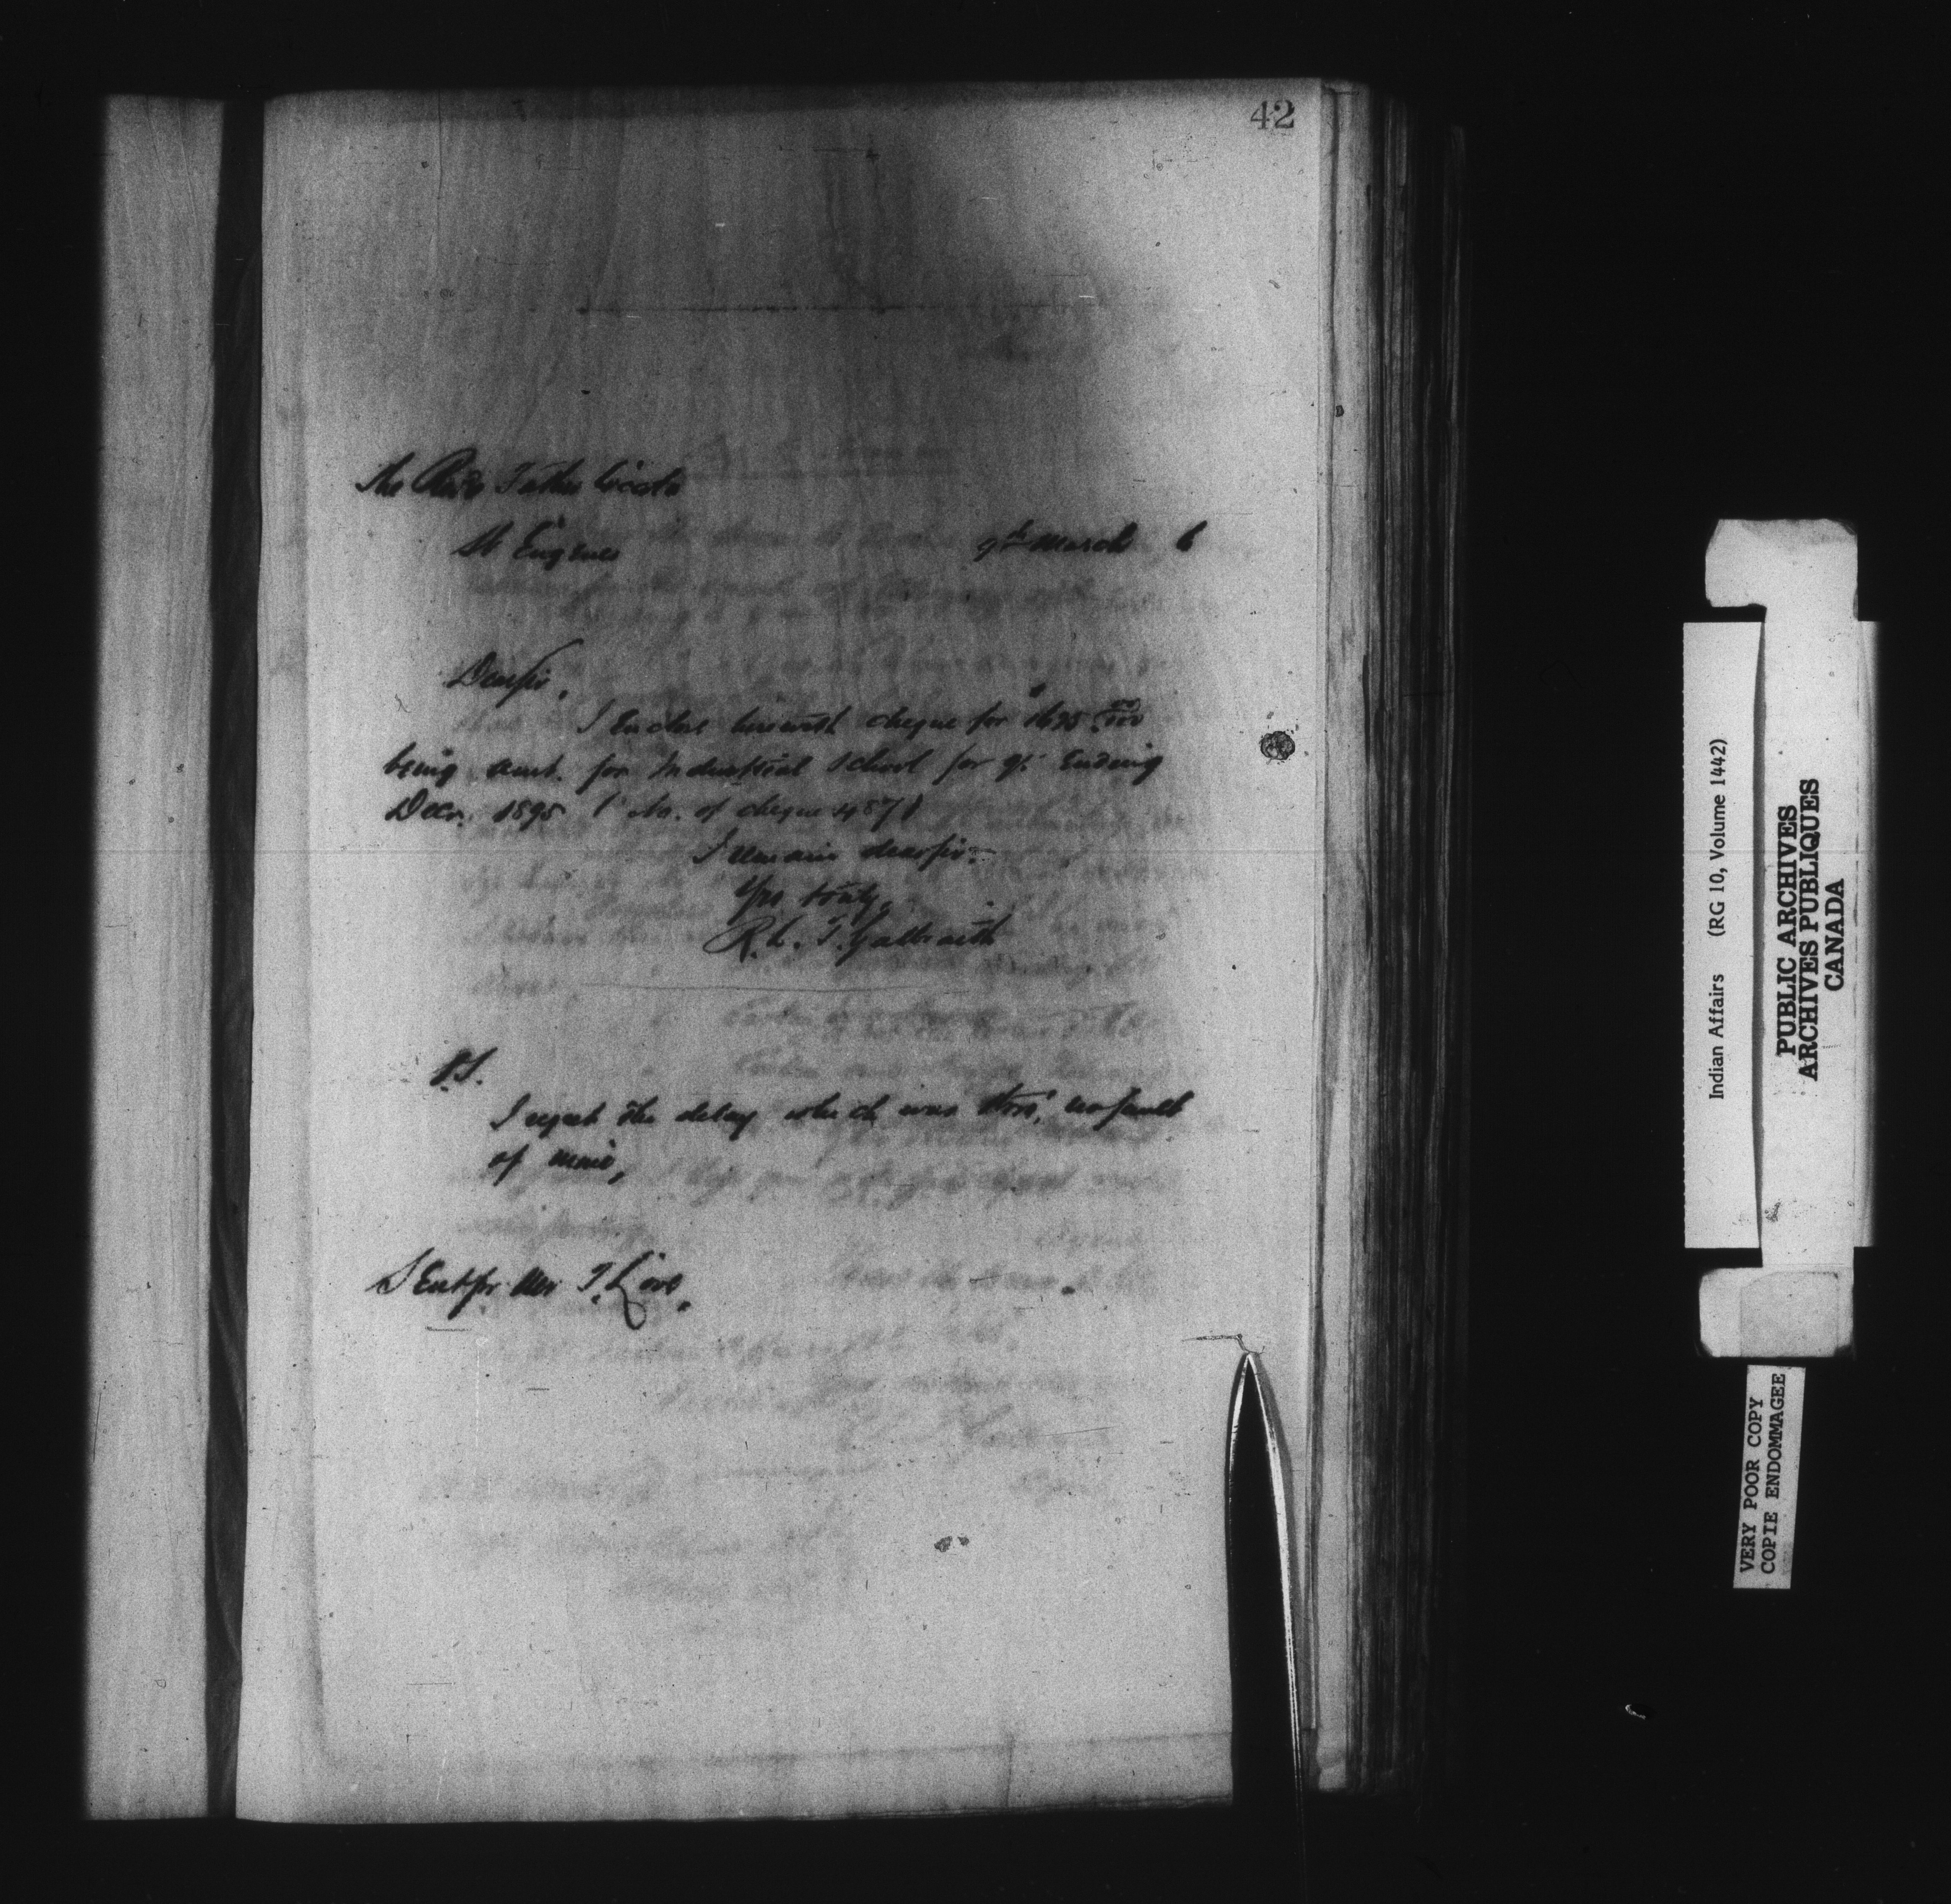 42
The Revd Father Coccola
St Eugene 9th March 6
Dear Sir,
I Enclose herewith cheque for $1695 00/100
being amt. for Industrial School for qr. Ending
Decr. 1895 (No. of cheque 487)
I remain dear sir
Yrs truly,
R. L. T. Galbraith
P.S.
I regret the delay which was thro' no fault
of mine,
Sent per Mr T. Love.
Indian Affairs (RG 10, Volume 1442)
PUBLIC ARCHIVES
ARCHIVES PUBLIQUES
CANADA
VERY POOR COPY
COPIE ENDOMMAGEE